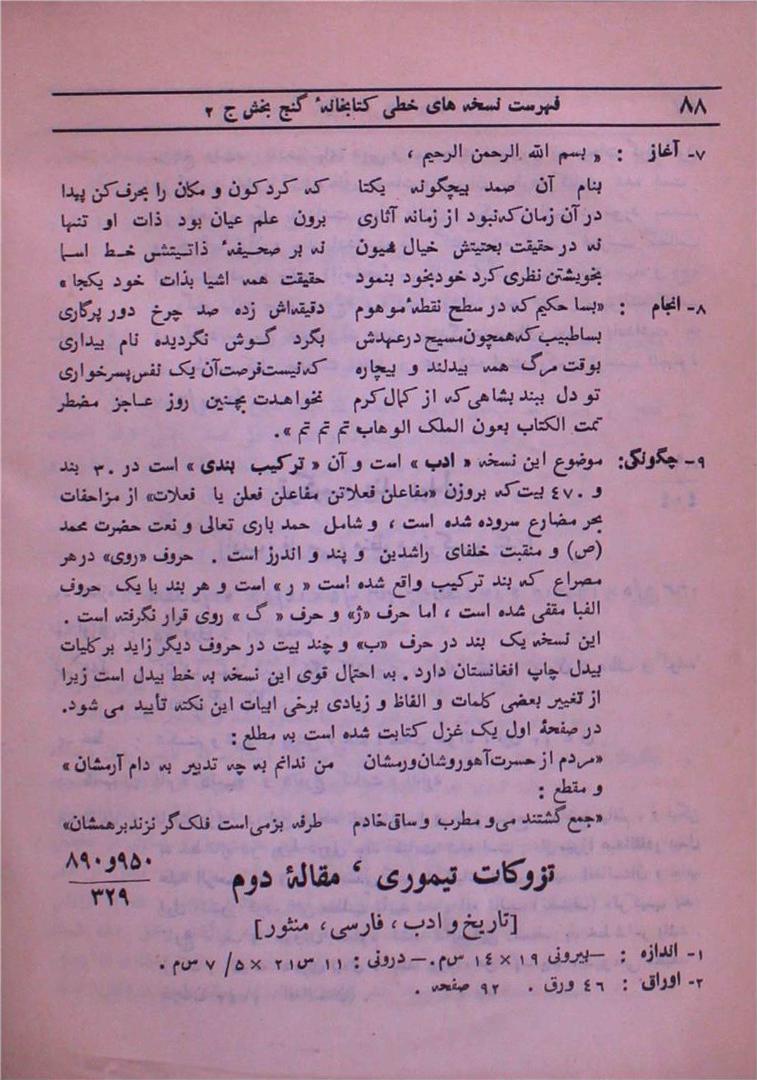 ۸۸ فهرست نسخه های خطی کتابخانهٔ گنج بخش ج ۲
۷- آغاز : « بسم الله الرحمن الرحیم ،
بنام آن صمد بیچگونه یکتا که کرد کون و مکان را بحرف کن پیدا
در آن زمان که نبود از زمانه آثاری برون علم عیان بود ذات او تنها
نه در حقیقت بحتیتش خیال هیون نه بر صحیفهٔ ذاتیتش خط اسما
بخویشتن نظری کرد خود بخود بنمود حقیقت همه اشیا بذات خود یکجا »
۸- انجام : «بسا حکیم که در سطح نقطهٔ موهوم دقیقه‌اش زده صد چرخ دور پرگاری
بسا طبیب که همچون مسیح در عهدش بگرد گوش نگردیده نام بیداری
بوقت مرگ همه بیدلند و بیچاره که نیست فرصت آن یک نفس پسرخواری
تو دل ببند بشاهی که از کمال کرم نخواهدت بچنین روز عاجز مضطر
تمت الکتاب بعون الملک الوهاب تم تم تم ».
۹- چگونگی: موضوع این نسخه « ادب » است و آن « ترکیب بندی » است در ۳۰ بند
و ۴۷۰ بیت که بروزن «مفاعلن فعلاتن مفاعلن فعلن یا فعلات» از مزاحفات
بحر مضارع سروده شده است ، و شامل حمد باری تعالی و نعت حضرت محمد
(ص) و منقبت خلفای راشدین و پند و اندرز است . حروف «روی» در هر
مصراع که بند ترکیب واقع شده است « ر » است و هر بند با یک حروف
الفبا مقفی شده است ، اما حرف «ژ» و حرف « گ » روی قرار نگرفته است .
این نسخه یک بند در حرف «ب» و چند بیت در حروف دیگر زاید بر کلیات
بیدل چاپ افغانستان دارد . به احتمال قوی این نسخه به خط بیدل است زیرا
از تغییر بعضی کلمات و الفاظ و زیادی برخی ابیات این نکته تأیید می شود.
در صفحهٔ اول یک غزل کتابت شده است به مطلع :
«مردم از حسرت آهو روشان و رمشان من ندانم به چه تدبیر به دام آرمشان »
و مقطع :
«جمع گشتند می و مطرب و ساقی خادم طرفه بزمی است فلک گر نزند بر همشان»
۹۵۰و۸۹۰
۳۲۹
تزوکات تیموری ، مقالهٔ دوم
[تاریخ و ادب ، فارسی ، منثور]
۱- اندازه : —بیرونی ۱۹ × ۱۴ س‌م.— درونی : ۱۱ س ۲۱ × ۵/ ۷ س‌م .
۲- اوراق : ۴۶ ورق . ۹۲ صفحه .